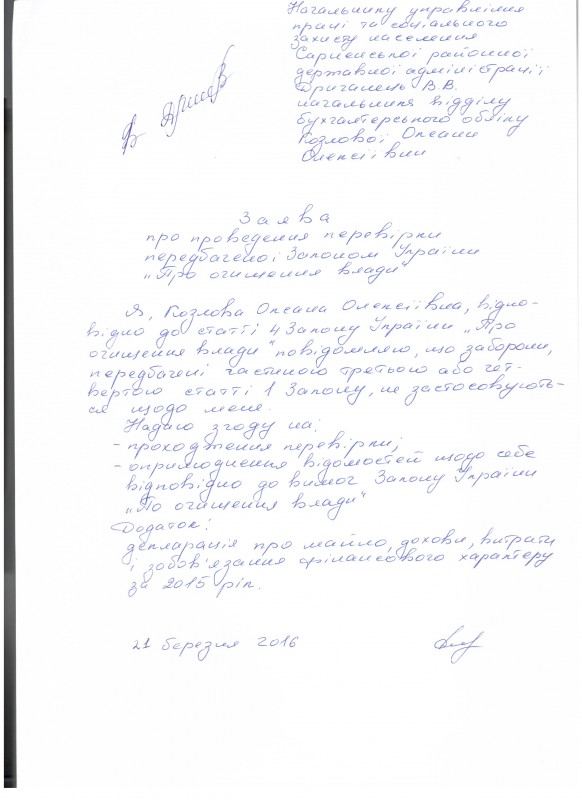 Начальнику управління
праці та соціального
захисту населення
Сарненської районної
державної адміністрації
Дриганець В.В.
начальника відділу
бухгалтерського обліку
Козлової Оксани
Олексіївни
Заява
про проведення перевірки
передбаченої Законом України
„Про очищення влади"
Я, Козлова Оксана Олексіївна, відпо-
відно до статті 4 Закону України „Про
очищення влади" повідомляю, що заборони,
передбачені частиною третьою або чет-
вертою статті 1 Закону, не застосовують-
ся щодо мене.
Надаю згоду на:
- проходження перевірки;
- оприлюднення відомостей щодо себе
відповідно до вимог Закону України
„По очищення влади"
Додаток:
декларація про майно, доходи, витрати
і зобов'язання фінансового характеру
за 2015 рік.
21 березня 2016